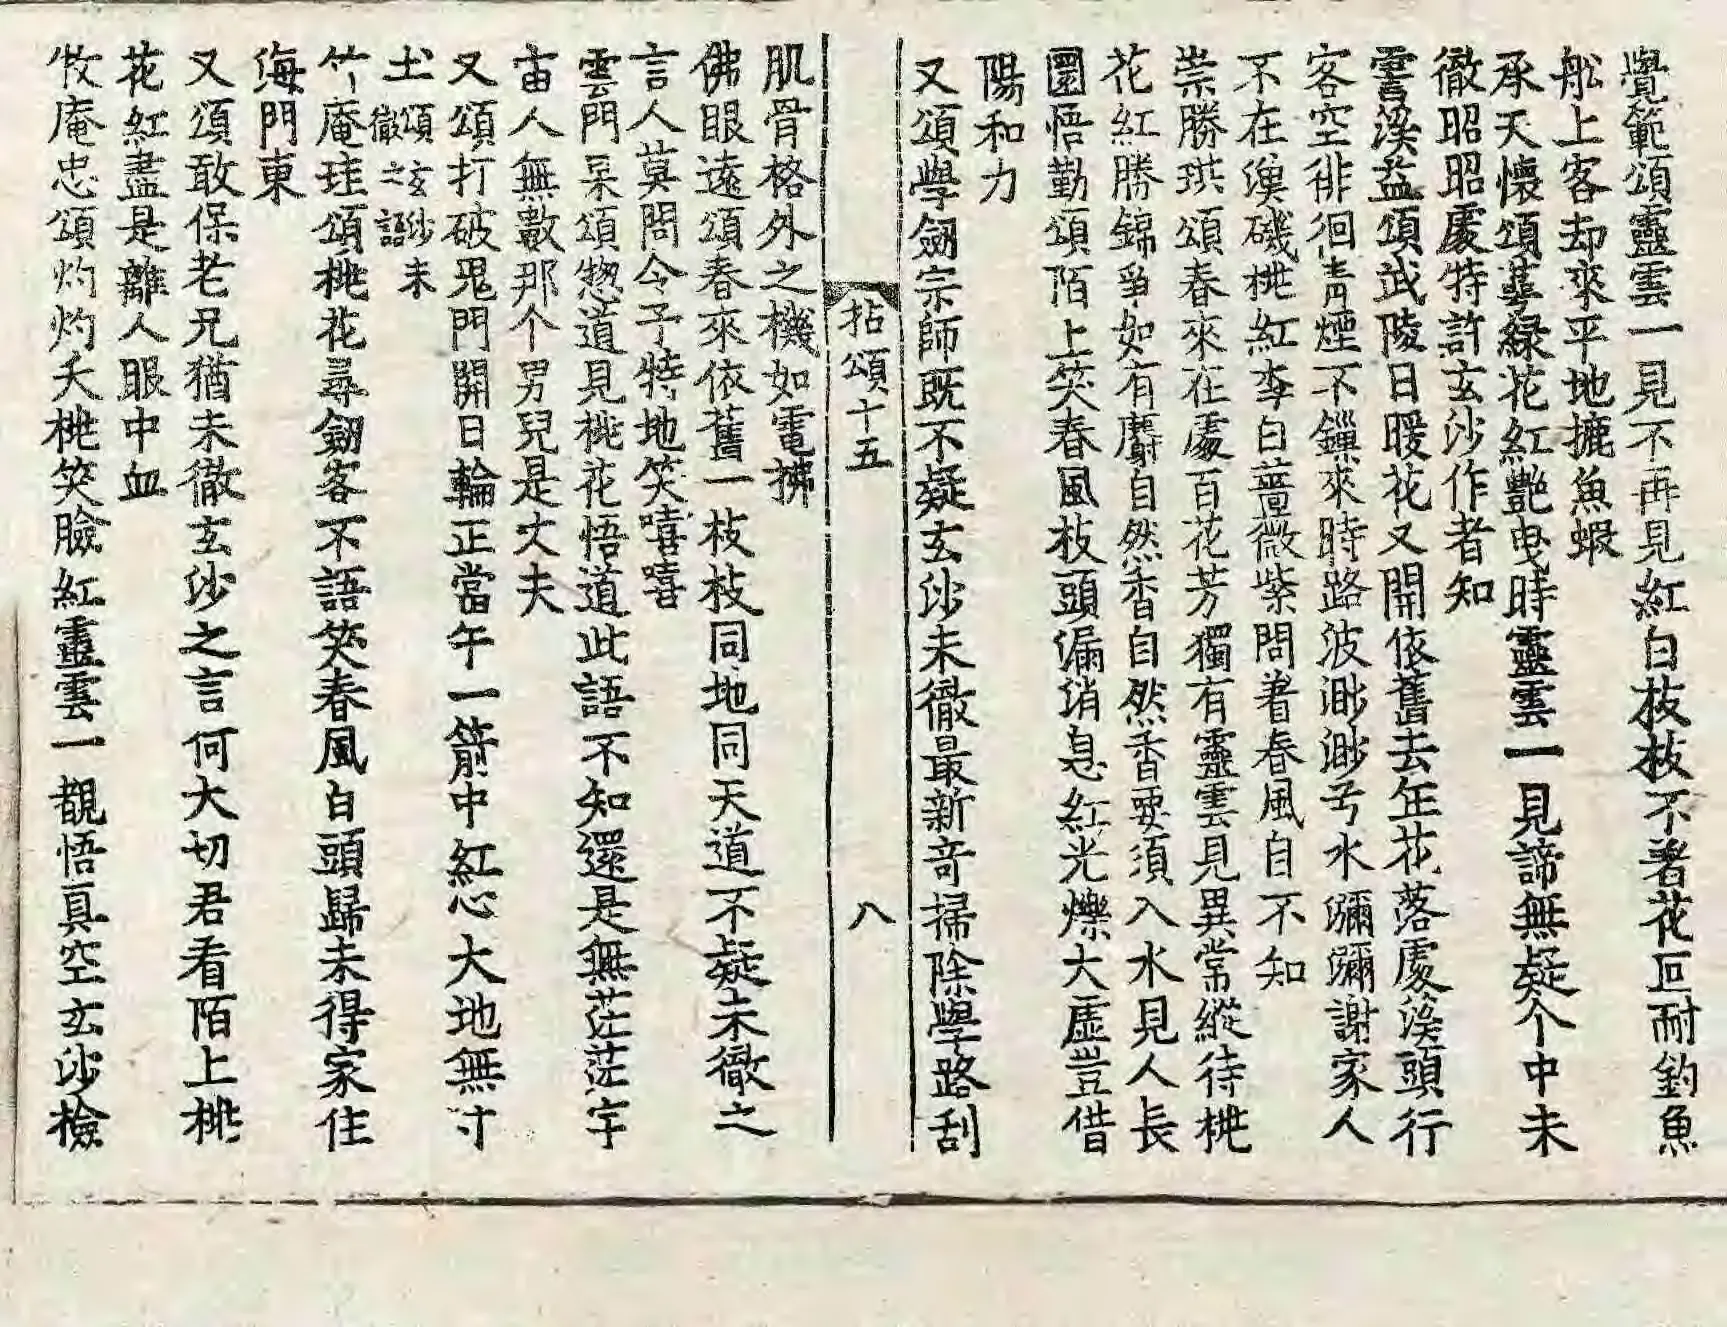 覺範頌靈雲一見不再見紅白枝枝不著花叵耐釣魚
船上客却來平地摝魚蝦
承天懷頌萼綠花紅艷曳時靈雲一見諦無疑个中未
徹昭昭處特許玄沙作者知
霅溪益頌武陵日暖花又開依舊去年花落處溪頭行
客空徘徊靑煙不鏁來時路波渺渺兮水瀰瀰謝家人
不在漁磯桃紅李白薔薇紫問着春風自不知
崇勝珙頌春來在處百花芳獨有靈雲見異常縱待桃
花紅勝錦爭如有麝自然香自然香要須入水見人長
圜悟勤頌陌上笑春風枝頭漏消息紅光爍大虛豈借
陽和力
又頌學劒宗師旣不疑玄沙未徹最新竒掃除學路刮
拈頌十五 八
肌骨格外之機如電拂
佛眼遠頌春來依舊一枝枝同地同天道不疑未徹之
言人莫問令予特地笑嘻嘻
雲門杲頌惣道見桃花悟道此語不知還是無茫茫宇
宙人無數那个男兒是丈夫
又頌打破鬼門開日輪正當午一箭中紅心大地無寸
土 頌玄沙未徹之語
竹庵珪頌桃花尋劒客不語笑春風白頭歸未得家住
海門東
又頌敢保老兄猶未徹玄沙之言何大切君看陌上桃
花紅盡是離人眼中血
牧庵忠頌灼灼夭桃笑臉紅靈雲一覩悟眞空玄沙檢